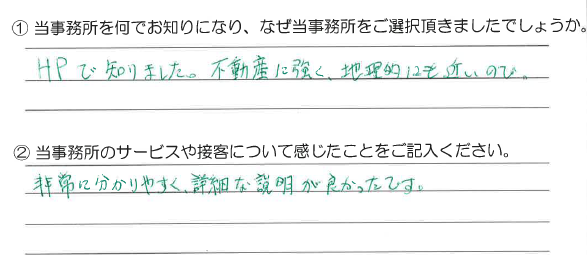 ① 当事務所を何でお知りになり、なぜ当事務所をご選択頂きましたでしょうか。
HPで知りました。不動産に強く、地理的にも近いので。
② 当事務所のサービスや接客について感じたことをご記入ください。
非常に分かりやすく、詳細な説明が良かったです。